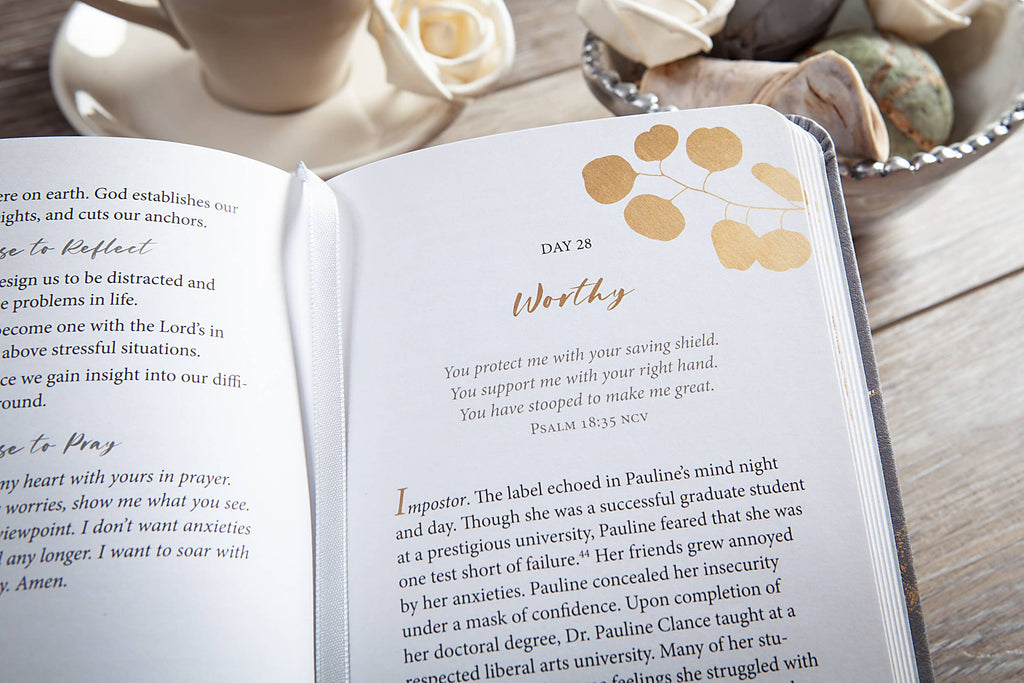 ere on earth. God establishes our
ights, and cuts our anchors.
se to Reflect
esign us to be distracted and
e problems in life.
ecome one with the Lord's in
above stressful situations.
ce we gain insight into our diffi-
round.
se to Pray
my heart with yours in prayer.
worries, show me what you see.
viewpoint. I don't want anxieties
any longer. I want to soar with
y. Amen.
DAY 28
Worthy
You protect me with your saving shield.
You support me with your right hand.
You have stooped to make me great.
PSALM 18:35 NCV
Impostor. The label echoed in Pauline's mind night
and day. Though she was a successful graduate student
at a prestigious university, Pauline feared that she was
one test short of failure.44 Her friends grew annoyed
by her anxieties. Pauline concealed her insecurity
under a mask of confidence. Upon completion of
her doctoral degree, Dr. Pauline Clance taught at a
respected liberal arts university. Many of her stu-
feelings she struggled with